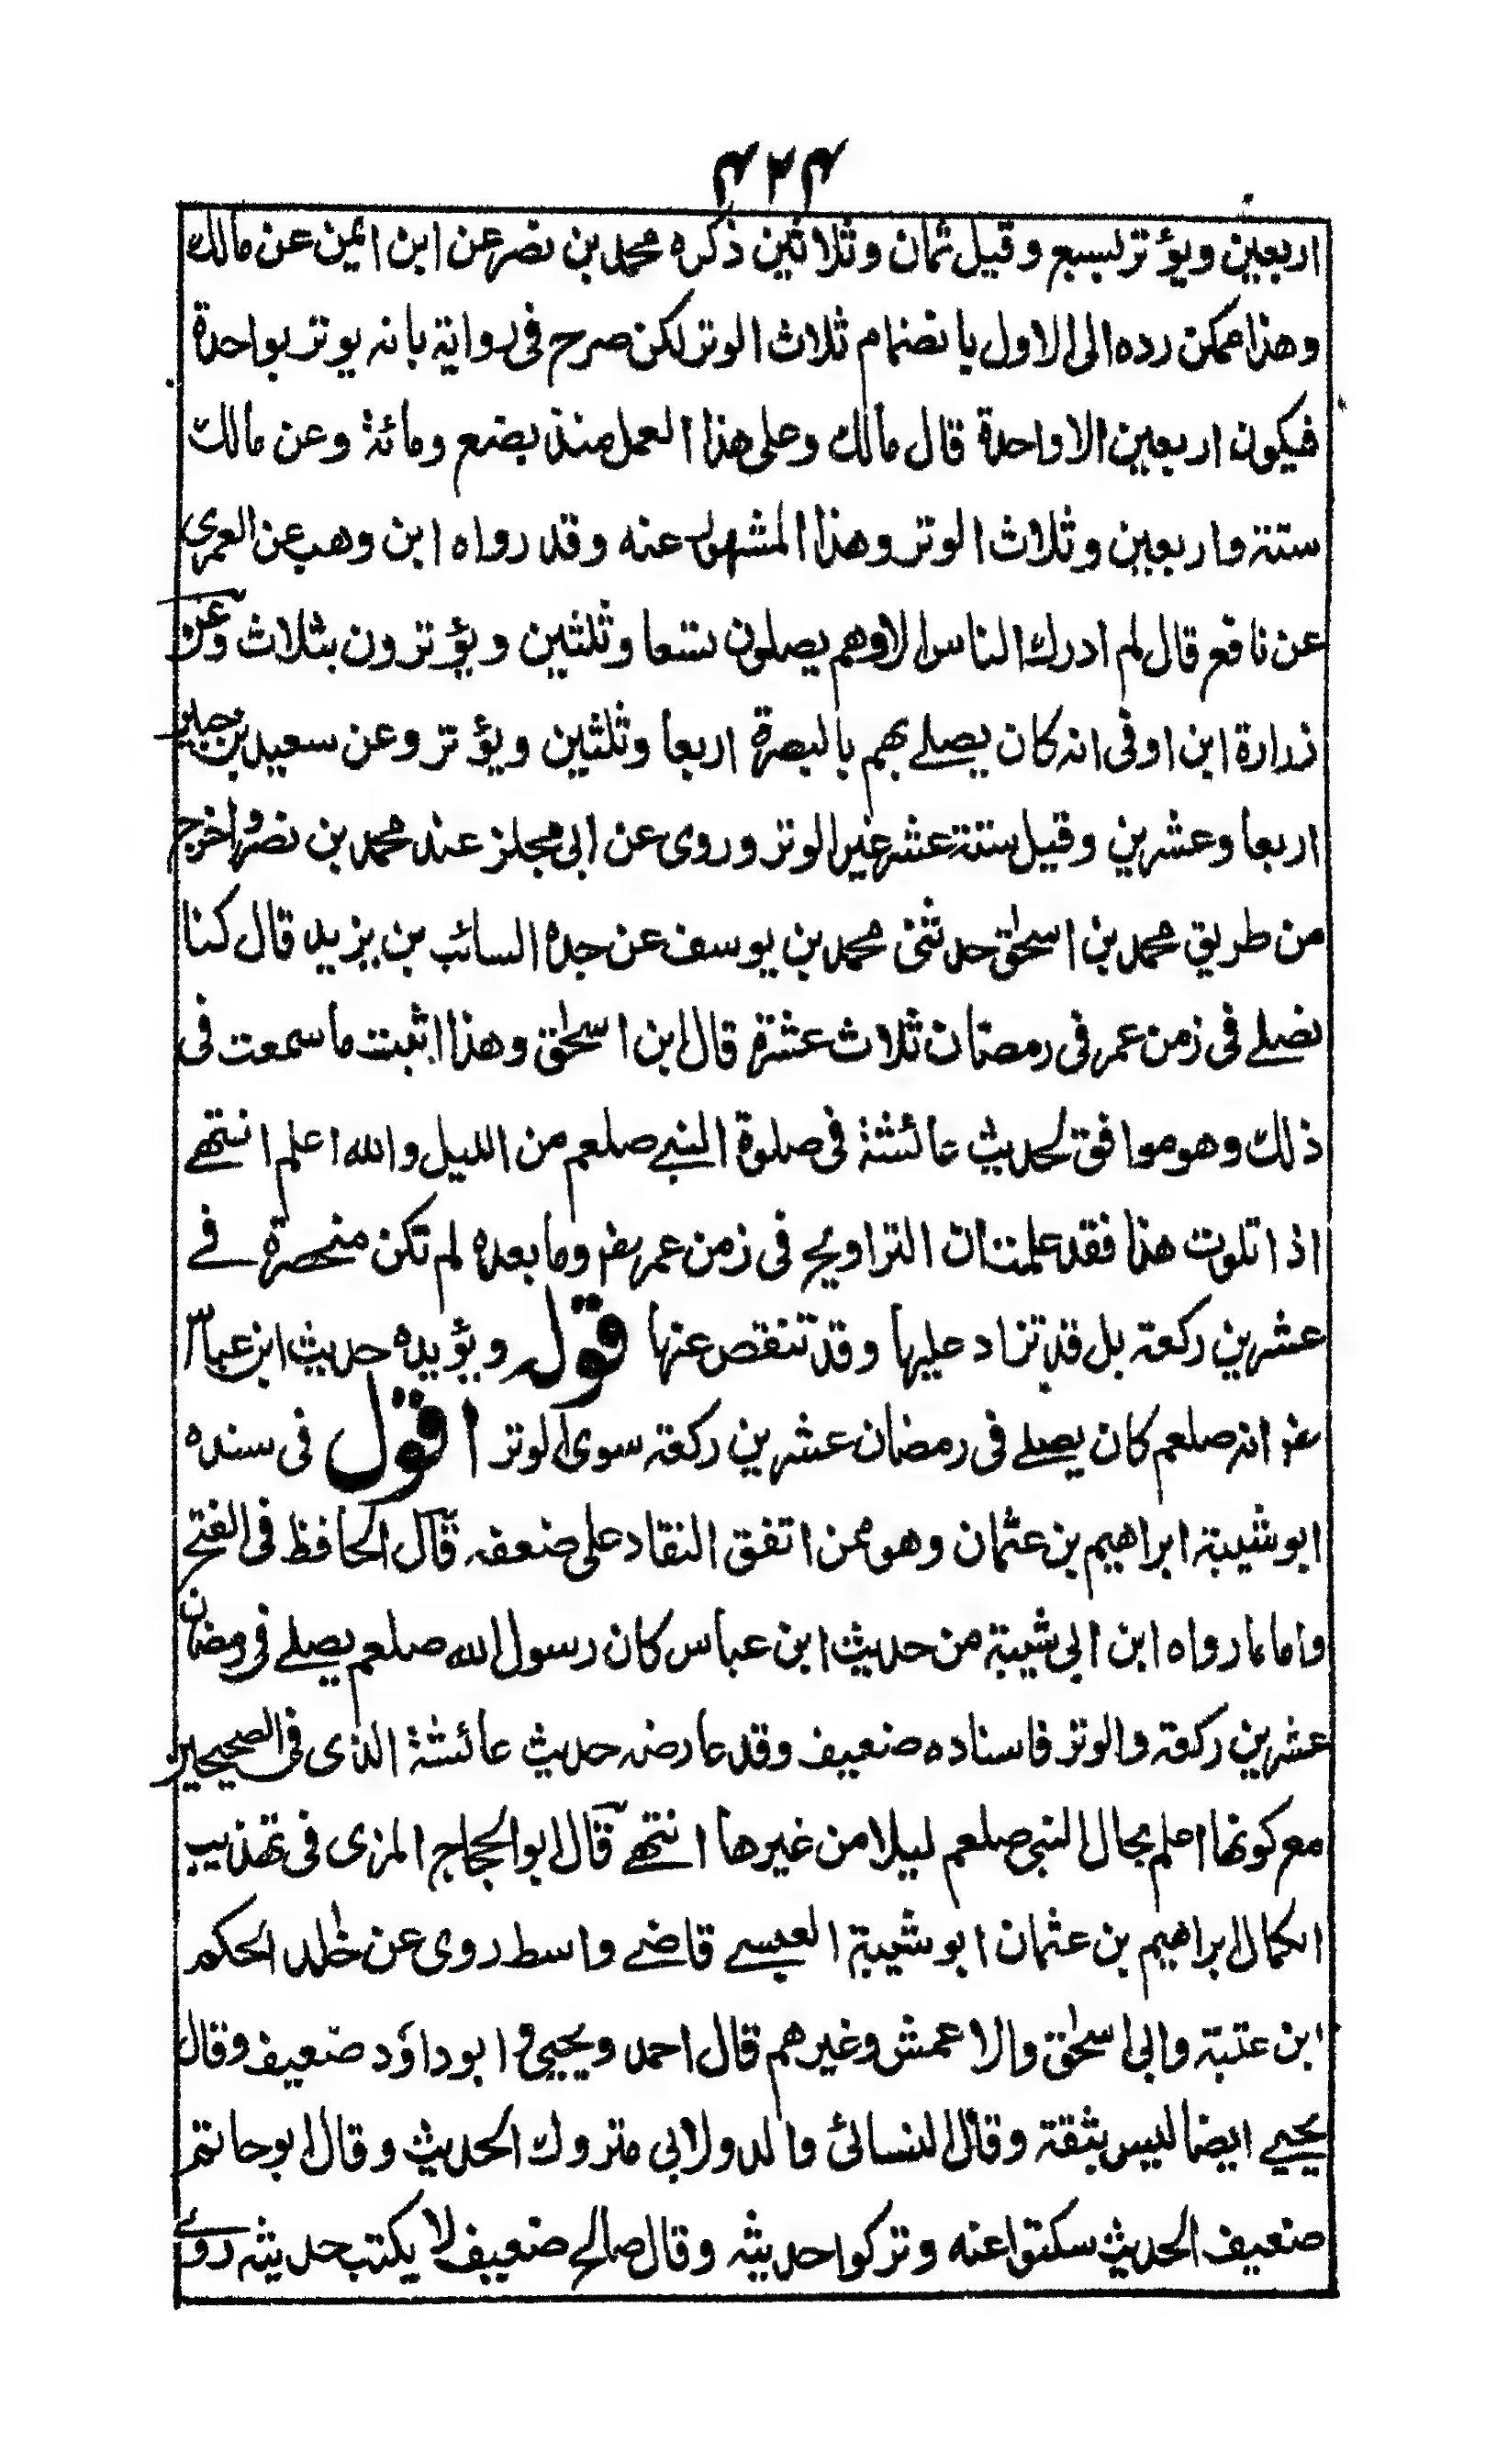 ۴۲۴
اربعين ويؤتر بسبع وقيل ثمان وثلاثين ذكره محمد بن نصر عن ابن ايمن عن مالك
وهذا ممكن رده الى الاول بانضمام ثلاث الوتر لكن صرح فى رواية بانه يوتر بواحدة
فيكون اربعين الا واحدة قال مالك وعلى هذا العمل منذ بضع ومائة وعن مالك
ستة واربعين وثلاث الوتر وهذا المشهور عنه وقد رواه ابن وهب عن العمرى
عن نافع قال لم ادرك الناس الا وهم يصلون تسعا وثلثين ويؤترون بثلاث وعن
زرارة ابن اوفى انه كان يصلے بهم بالبصرة اربعا وثلثين ويؤتر وعن سعيد بن جبير
اربعا وعشرين وقيل ستة عشر غير الوتر وروى عن ابى مجلز عند محمد بن نصر واخرج
من طريق محمد بن اسحٰق حدثنى محمد بن يوسف عن جده السائب بن يزيد قال كنا
نصلے فى زمن عمر فى رمضان ثلاث عشرة قال ابن اسحٰق وهذا اثبت ما سمعت فى
ذلك وهو موافق لحديث عائشة فى صلوة النبے صلعم من الليل والله اعلم انتهے
اذا تلوت هذا فقد علمت ان التراويح فى زمن عمر رض وما بعده لم تكن منحصرة فے
عشرين ركعة بل قد تزاد عليها وقد تنقص عنها قوله ويؤيده حديث ابن عباس
رض انه صلعم كان يصلے فى رمضان عشرين ركعة سوى الوتر اقول فى سنده
ابو شيبة ابراهيم بن عثمان وهو ممن اتفق النقاد على ضعفه قال الحافظ فى الفتح
واما ما رواه ابن ابى شيبة من حديث ابن عباس كان رسول الله صلعم يصلے فى رمضان
عشرين ركعة والوتر فاسناده ضعيف وقد عارضه حديث عائشة الذى فى الصحيحين
مع كونها اعلم بحال النبى صلعم ليلا من غيرها انتهے قال ابو الحجاج المزى فى تهذيب
الكمال ابراهيم بن عثمان ابو شيبة العبسے قاضے واسط روى عن خٰلد الحكم
ابن عتبة وابى اسحٰق والاعمش وغيرهم قال احمد ويحيى و ابو داؤد ضعيف وقال
يحيے ايضا ليس بثقة وقال النسائى والدولابى متروك الحديث وقال ابو حاتم
ضعيف الحديث سكتوا عنه وتركوا حديثه وقال صالح ضعيف لا يكتب حديثه روے